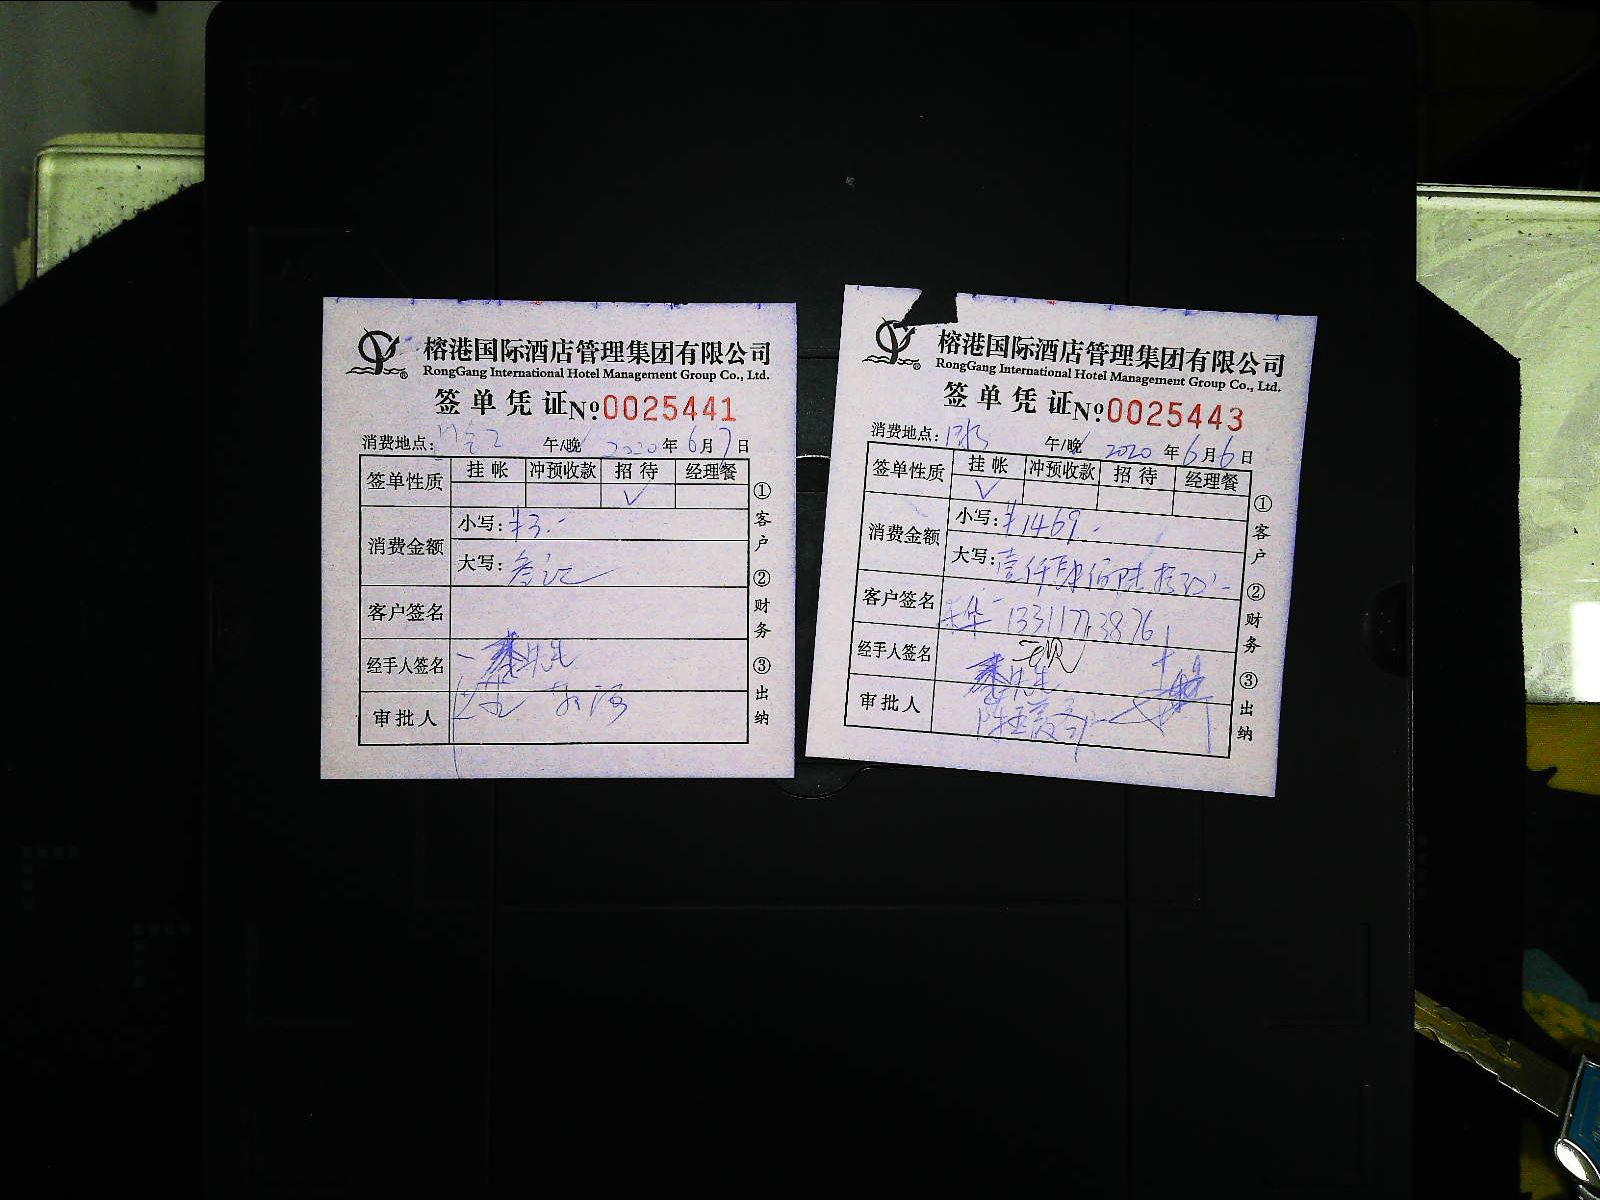 榕港国际酒店管理集团有限公司
RongGang International Hotel Management Group Co., Ltd.
签单凭证 №:0025441
消费地点: 午/晚 2020年6月7日
签单性质 挂帐 冲预收款 招待 经理餐
✓
消费金额 小写:¥3.-
大写:
客户签名
经手人签名 先生
审批人
①客户 ②财务 ③出纳
榕港国际酒店管理集团有限公司
RongGang International Hotel Management Group Co., Ltd.
签单凭证 №:0025443
消费地点: 午/晚 2020年6月6日
签单性质 挂帐 冲预收款 招待 经理餐
✓
消费金额 小写:¥1469.-
大写:壹仟肆佰陆拾玖
客户签名 华 13311773876
经手人签名 先生
审批人
①客户 ②财务 ③出纳